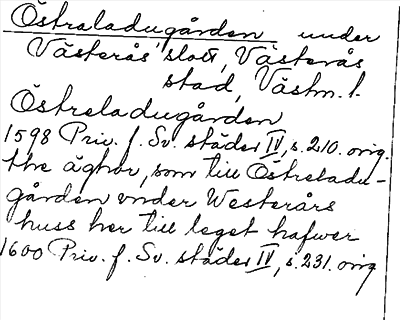 Östraladugården under
Västerås slott, Västerås
stad, Västm. l.
Östreladugården
1598 Priv. f. Sv. städer IV, s. 210. orig.
the äghor, som till Östreladu-
gården vnder Westerårs
huss her till leget hafwer
1600 Priv. f. Sv. städer IV, s. 231. orig